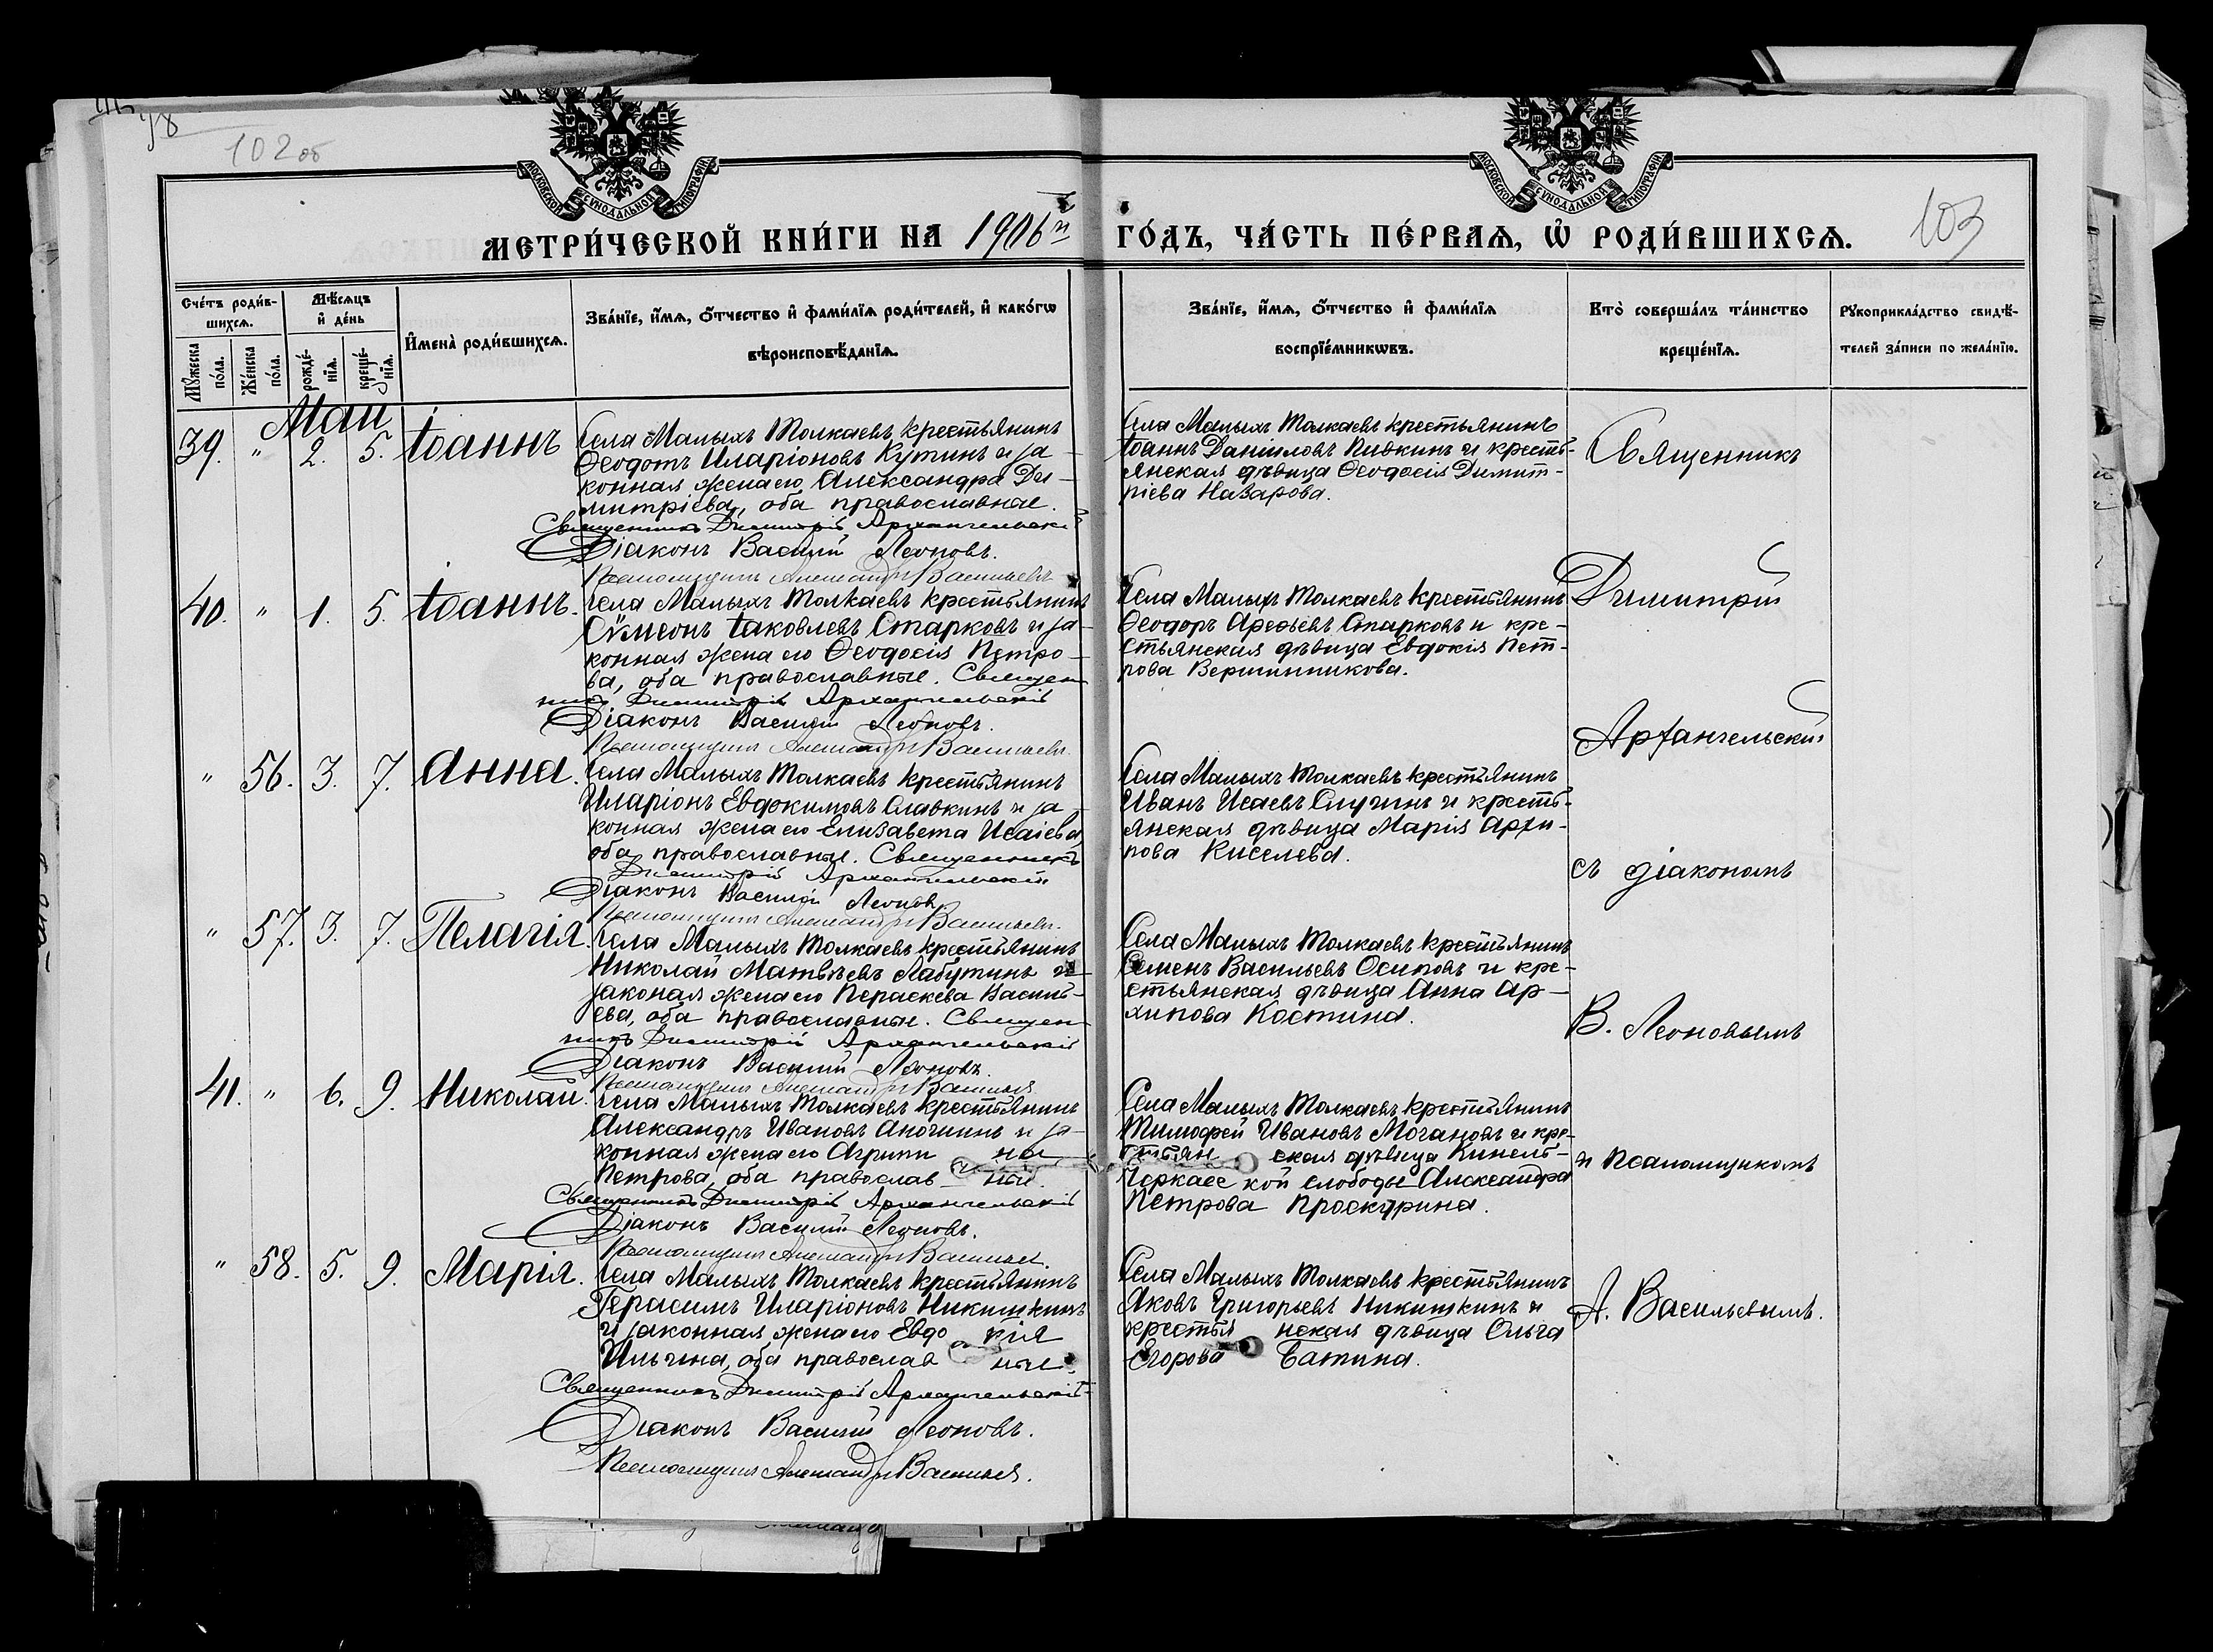 102 об
МОСКОВСКОЙ СѴНОДАЛЬНОЙ ТИПОГРАФІИ
МОСКОВСКОЙ СѴНОДАЛЬНОЙ ТИПОГРАФІИ
МЕТРИ́ЧЕСКОЙ КНИ́ГИ НА 1906й
ГО́ДЪ, ЧА́СТЬ ПЕ́РВАѦ, Ѡ҆ РОДИ́ВШИХСѦ.
103
Сче́тъ роди́в-
шихсѧ.
Мѣ́сѧцъ
и҆ де́нь
Мꙋ́жеска
по́ла.
Же́нска
по́ла.
рожде́-
нїѧ.
креще́-
нїѧ.
И҆мена̀ роди́вшихсѧ.
Зва́нїе, и҆́мѧ, ѻ҆́тчество и҆ фами́лїѧ роди́телей, и҆ како́гѡ
вѣроисповѣ́данїѧ.
Зва́нїе, и҆́мѧ, ѻ҆́тчество и҆ фами́лїѧ
воспрїе́мникѡвъ.
Кто̀ соверша́лъ та́инство
креще́нїѧ.
Рꙋкоприкла́дство свидѣ́-
телей за́писи по жела́нїю.
Май
39. " 2. 5. Іоаннъ
Села Малыхъ Толкаевъ крестьянинъ
Ѳеодотъ Иларіоновъ Кутинъ и за-
конная жена его Александра Ди-
митріева, оба православные.
Священникъ Димитрій Архангельскій
Діаконъ Василій Леоновъ.
Псаломщикъ Александръ Васильевъ
Села Малыхъ Толкаевъ крестьянинъ
Іоаннъ Даніиловъ Пивкинъ и кресть-
янская дѣвица Ѳеодосія Димит-
ріева Назарова.
40. " 1. 5. Іоаннъ.
Села Малыхъ Толкаевъ крестьянинъ
Сѵмеонъ Іаковлевъ Старковъ и за-
конная жена его Ѳеодосія Петро-
ва, оба православные. Священ
никъ Димитрій Архангельскій
Діаконъ Василій Леоновъ.
Псаломщикъ Александръ Васильевъ.
Села Малыхъ Толкаевъ крестьянинъ
Ѳеодоръ Арефьевъ Старковъ и кре-
стьянская дѣвица Евдокія Пет-
рова Вершинникова.
" 56. 3. 7. Анна.
Села Малыхъ Толкаевъ крестьянинъ
Иларіонъ Евдокимовъ Славкинъ и за-
конная жена его Елизавета Исаіева,
оба православные. Священникъ
Димитрій Архангельскій
Діаконъ Василій Леоновъ
Псаломщикъ Александръ Васильевъ.
Села Малыхъ Толкаевъ крестьянинъ
Иванъ Исаевъ и кресть-
янская дѣвица Марія Архи-
пова Киселева.
" 57. 3. 7. Пелагія.
Села Малыхъ Толкаевъ крестьянинъ
Николай Матвѣевъ Лабутинъ и
законая жена его Параскева Василь-
ева, оба православные. Священ
никъ Димитрій Архангельскій
Діаконъ Василій Леоновъ.
Псаломщикъ Александръ Васильевъ
Села Малыхъ Толкаевъ крестьянинъ
Семенъ Васильевъ Осиповъ и кре-
стьянская дѣвица Анна Ар-
хипова Костина.
41. " 6. 9. Николай.
Села Малыхъ Толкаевъ крестьянинъ
Александръ Ивановъ Аночинъ и за-
конная жена его Агрипи на
Петрова, оба православ ные.
Священникъ Димитрій Архангельскій
Діаконъ Василій Леоновъ.
Псаломщикъ Александръ Васильев.
Села Малыхъ Толкаевъ крестьянинъ
Тимофей Ивановъ Мочановъ и кре-
стьян ская дѣвица Кинель-
Черкасс кой слободы Александра
Петрова Проскурина.
" 58. 5. 9. Марія.
Села Малыхъ Толкаевъ крестьянинъ
Герасимъ Иларіоновъ Никишкинъ
и законная жена его Евдо кія
Ильина, оба православ ные.
Священникъ Димитрій Архангельскій
Діаконъ Василій Леоновъ.
Псаломщикъ Александръ Васильев.
Села Малыхъ Толкаевъ крестьянинъ
Яковъ Григорьевъ Никишкинъ и
крестья нская дѣвица Ольга
Егорова Батина.
Священникъ
Димитрій
Архангельскій
съ діакономъ
В. Леоновымъ
и псаломщикомъ
А. Васильевымъ.